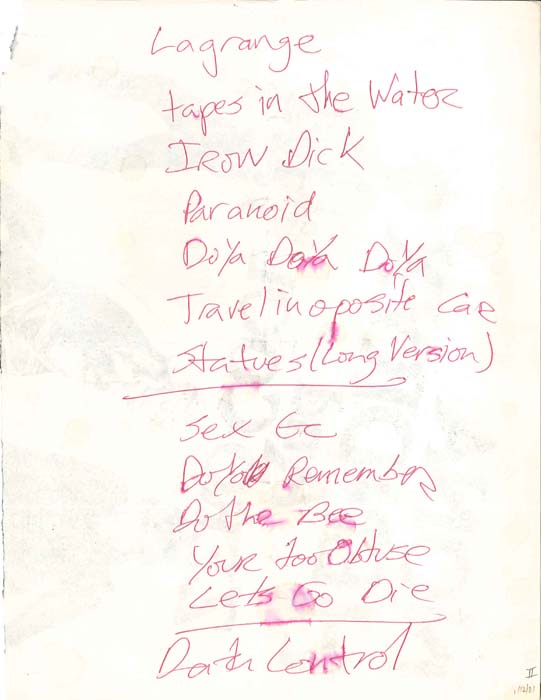 Lagrange
tapes in the Water
Iron Dick
Paranoid
DoYa DoYa DoYa
Travel in oposite Car
Statues (Long Version)
Sex Ec
Do You Remember
Do the Bee
Your too Obtuse
Lets Go Die
Data Control
II